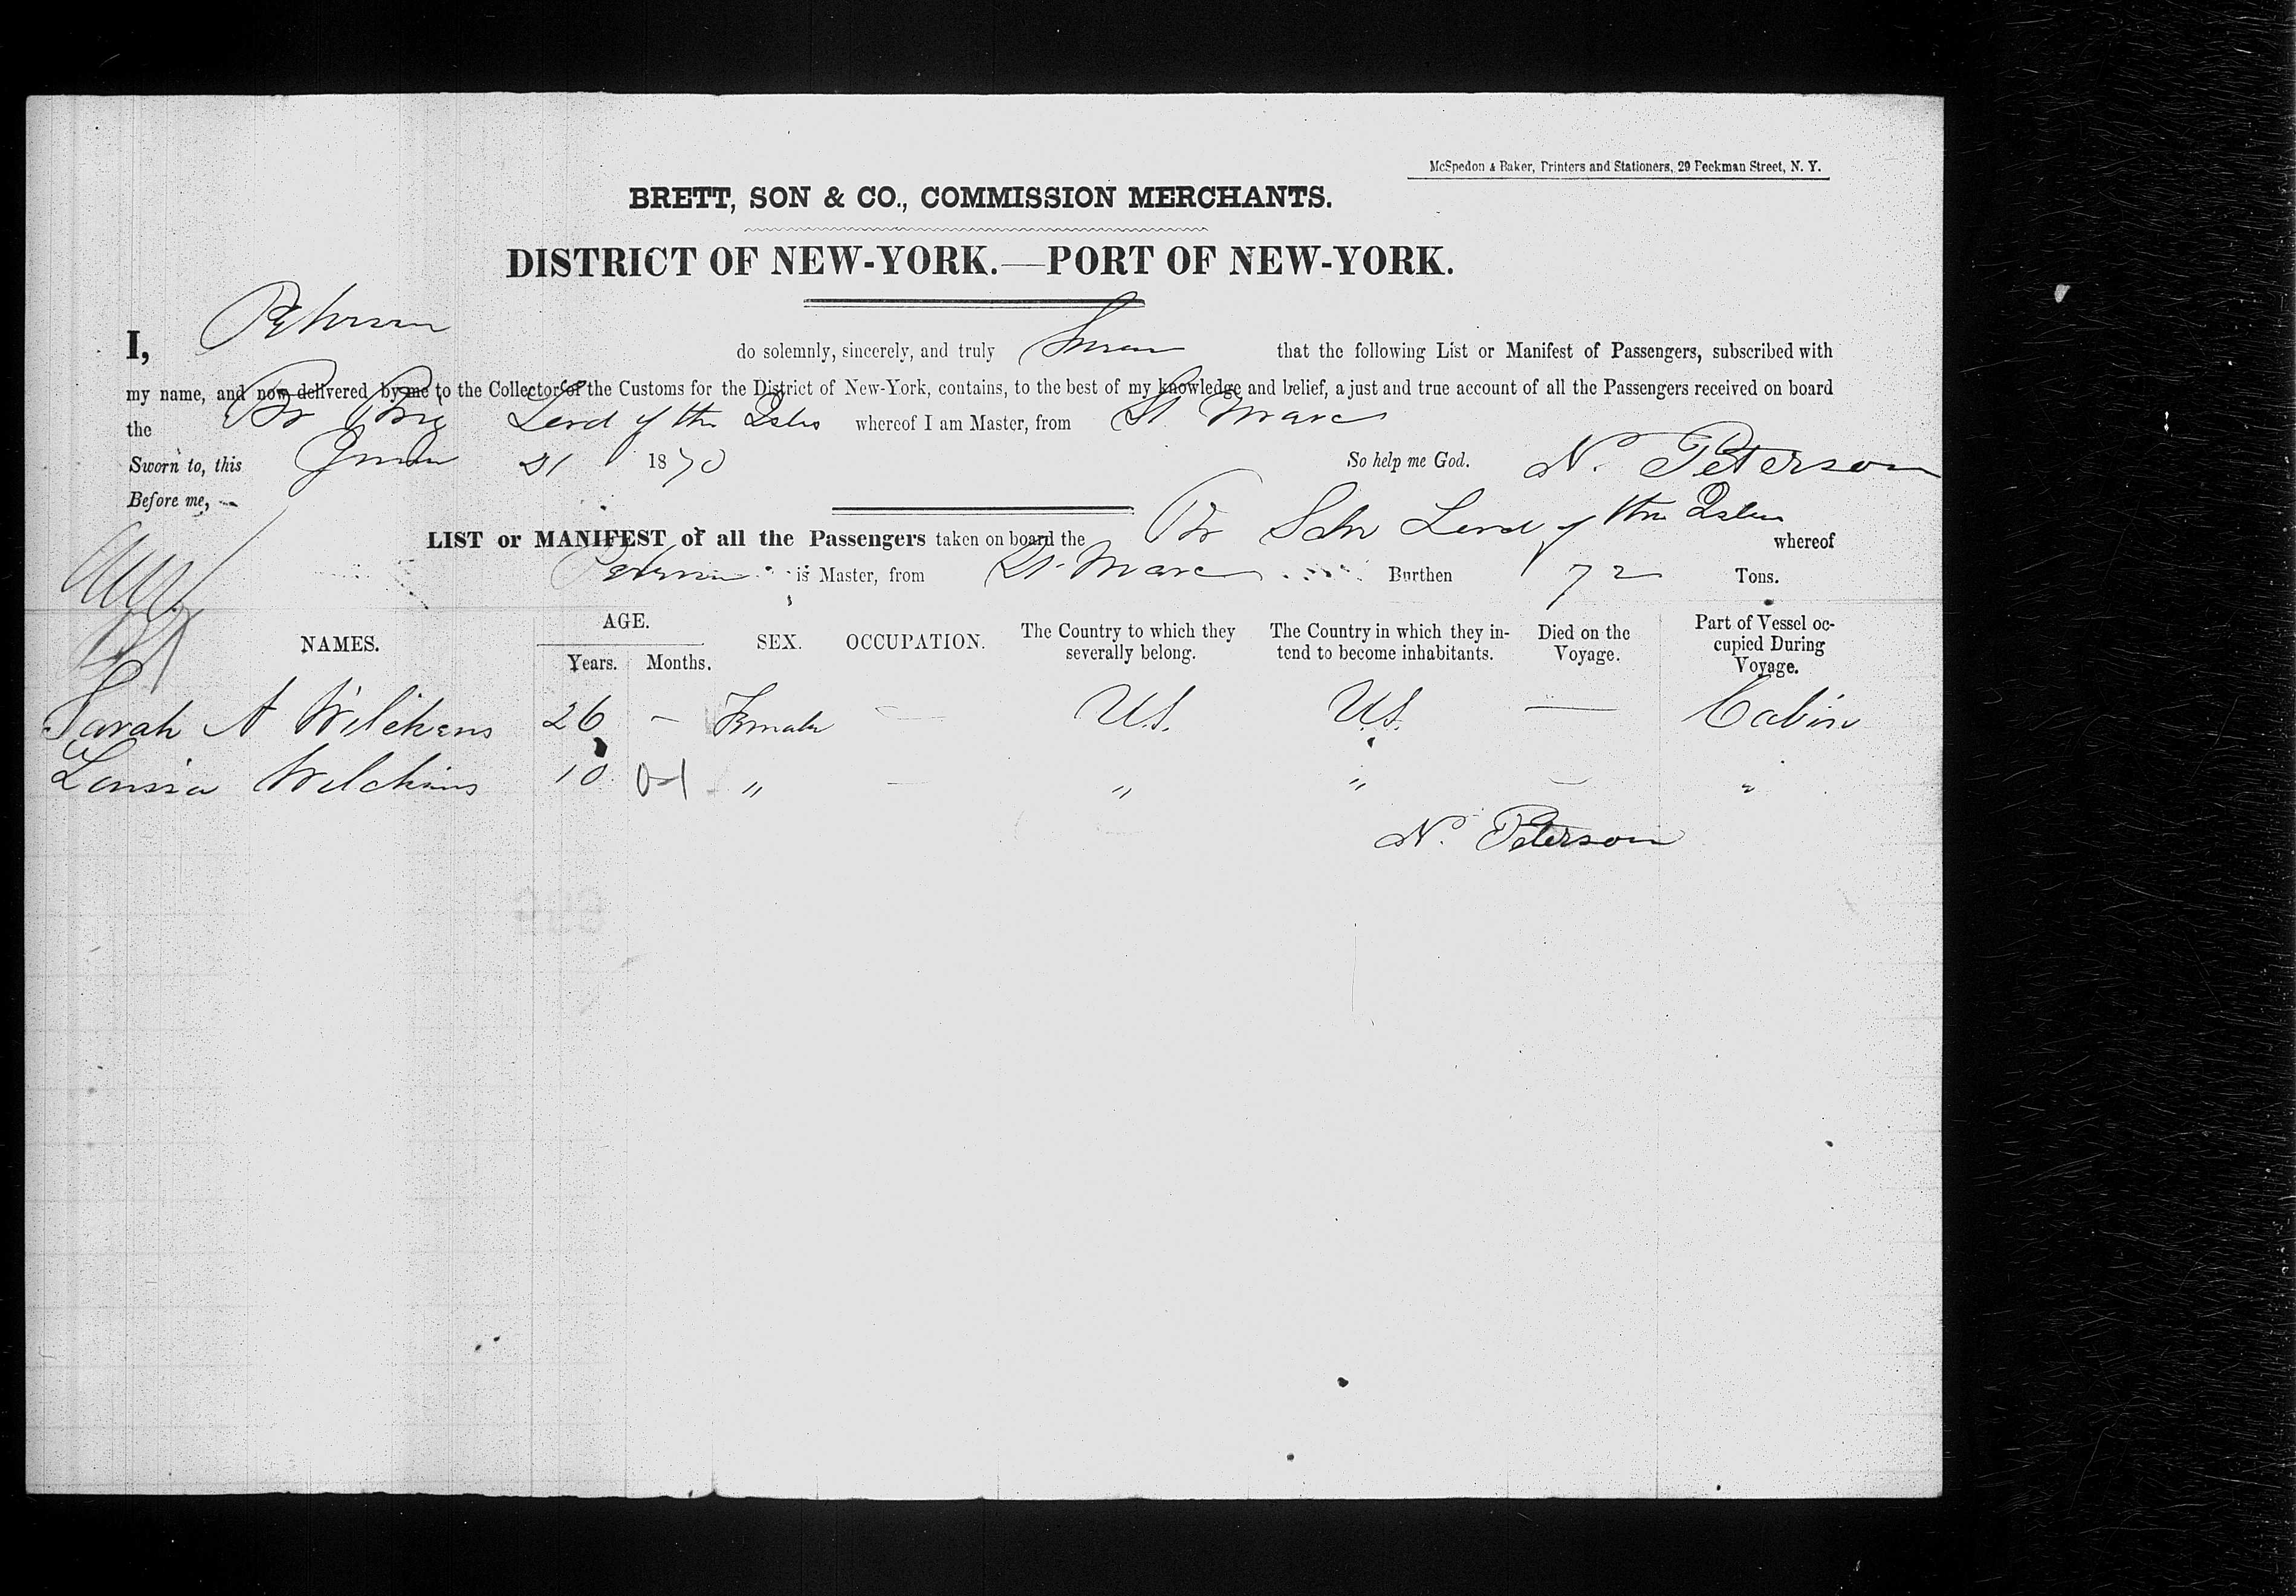 McSpedon & Baker, Printers and Stationers, 29 Beekman Street, N. Y.
BRETT, SON & CO., COMMISSION MERCHANTS.
DISTRICT OF NEW-YORK.—PORT OF NEW-YORK.
I, Peterson do solemnly, sincerely, and truly Swear that the following List or Manifest of Passengers, subscribed with
my name, and now delivered by me to the Collector of the Customs for the District of New-York, contains, to the best of my knowledge and belief, a just and true account of all the Passengers received on board
the Br Brig Lord of the Isles whereof I am Master, from St Marc
Sworn to, this 21 1870 So help me God. N. Peterson
Before me,
LIST or MANIFEST of all the Passengers taken on board the Br Schr Lord of the Isles whereof
Peterson is Master, from St Marc Burthen 72 Tons.
NAMES. AGE. Years. Months. SEX. OCCUPATION. The Country to which they severally belong. The Country in which they intend to become inhabitants. Died on the Voyage. Part of Vessel occupied During Voyage.
Sarah A Wilchens 26 — Female — U.S. U.S. — Cabin
Louisa Wilchins 10 " — " " — "
N. Peterson